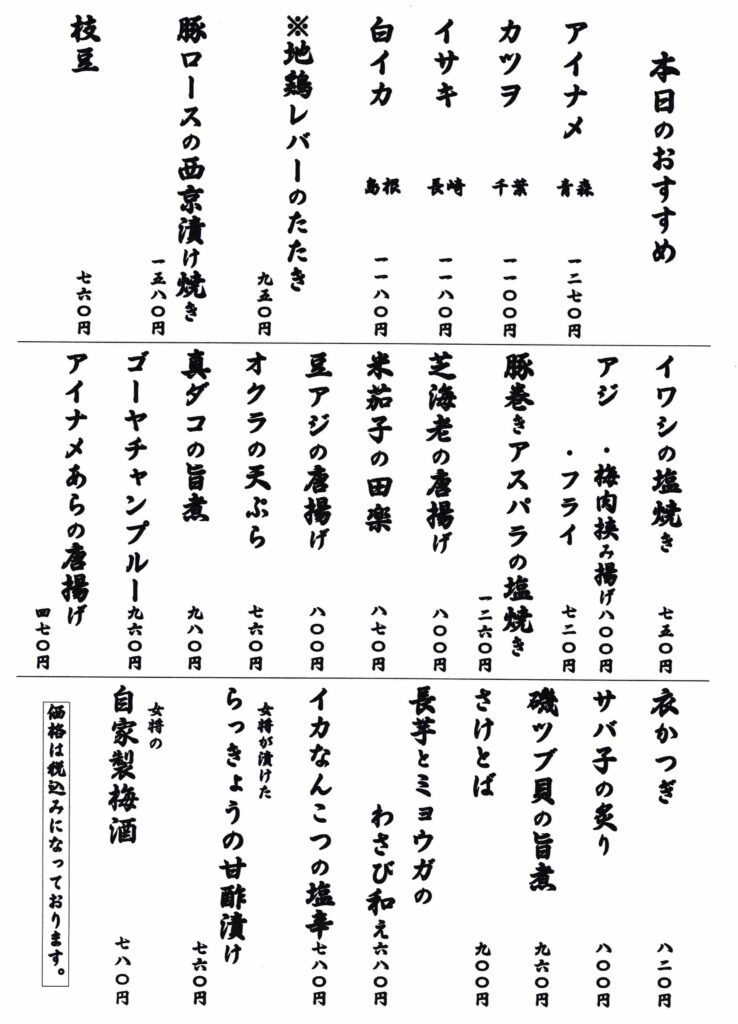 本日のおすすめ
アイナメ 青森 一二七〇円
カツヲ 千葉 一一〇〇円
イサキ 長崎 一一八〇円
白イカ 島根 一一八〇円
※地鶏レバーのたたき 九五〇円
豚ロースの西京漬け焼き 一五八〇円
枝豆 七六〇円
イワシの塩焼き 七五〇円
アジ ・梅肉挟み揚げ 八〇〇円
・フライ 七二〇円
豚巻きアスパラの塩焼き 一二六〇円
芝海老の唐揚げ 八〇〇円
米茄子の田楽 八七〇円
豆アジの唐揚げ 八〇〇円
オクラの天ぷら 七六〇円
真ダコの旨煮 九八〇円
ゴーヤチャンプルー 九六〇円
アイナメあらの唐揚げ 四七〇円
衣かつぎ 八二〇円
サバ子の炙り 八〇〇円
磯ツブ貝の旨煮 九六〇円
さけとば 九〇〇円
長芋とミョウガの
わさび和え 六八〇円
イカなんこつの塩辛 七八〇円
女将が漬けた
らっきょうの甘酢漬け 七六〇円
女将の
自家製梅酒 七八〇円
価格は税込みになっております。